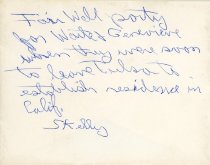 Fair Will party
for Waite & Genevieve
when they were soon
to leave Tulsa to
establish residence in
Calif.
Skelly